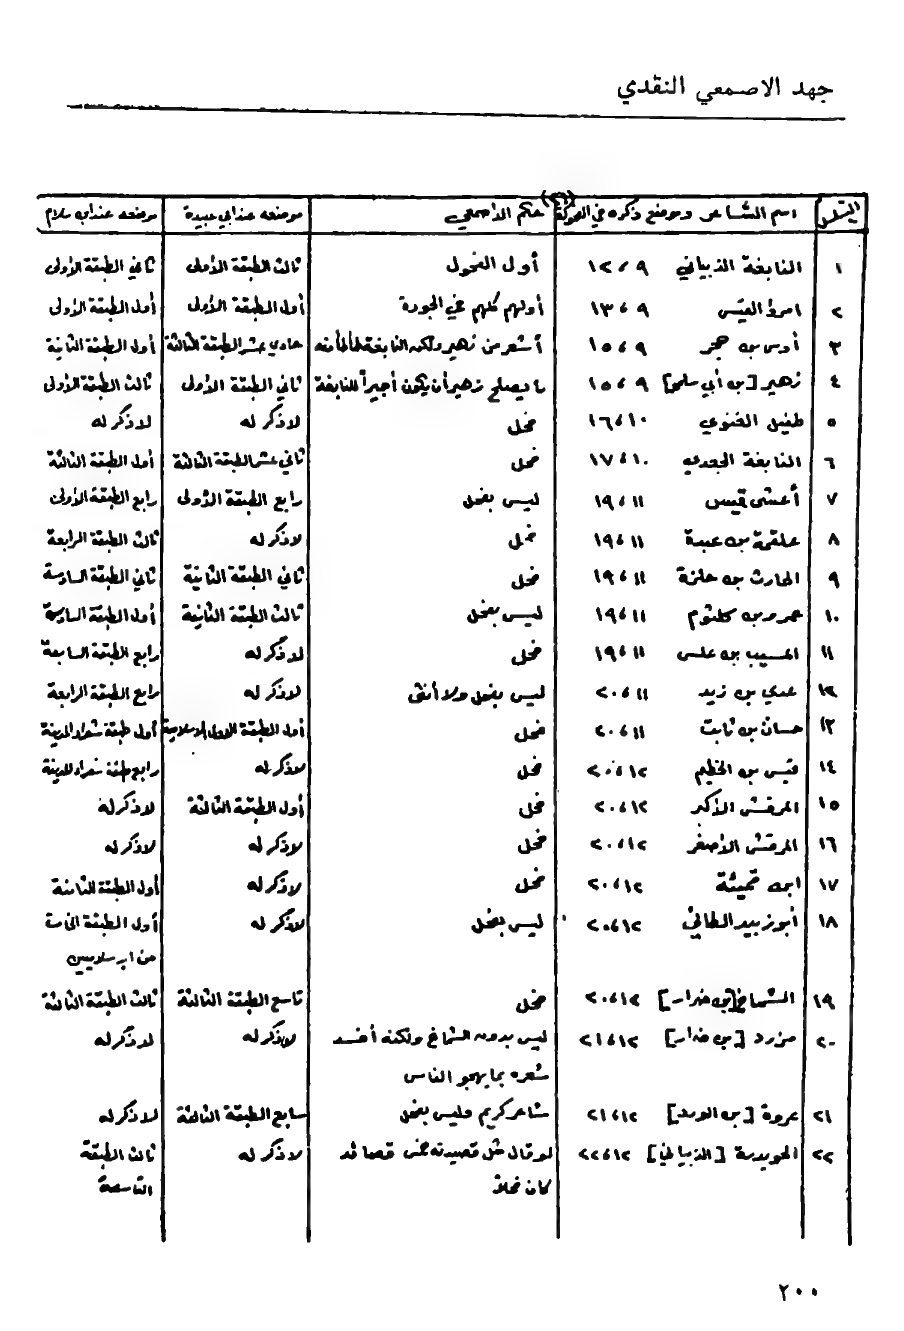 جهد الاصمعي النقدي
التسلسل اسم الشاعر وموضع ذكره في الفحولة (٣١) حكم الاصمعي موضعه عند ابي عبيدة موضعه عند ابن سلام
١ النابغة الذبياني ٩ ، ١٢ أول الفحول ثالث الطبقة الأولى ثاني الطبقة الأولى
٢ امرؤ القيس ٩ ، ١٣ أولهم كلهم في الجودة أول الطبقة الأولى أول الطبقة الأولى
٣ أوس بن حجر ٩ ، ١٥ أشعر من زهير ولكن النابغة طأطأ منه حادي عشر الطبقة الثالثة أول الطبقة الثانية
٤ زهير [بن أبي سلمى] ٩ ، ١٥ ما يصلح زهير أن يكون أجيراً للنابغة ثاني الطبقة الأولى ثالث الطبقة الأولى
٥ طفيل الغنوي ١٠ ، ١٦ فحل لا ذكر له لا ذكر له
٦ النابغة الجعدي ١٠ ، ١٧ فحل ثاني عشر الطبقة الثالثة أول الطبقة الثالثة
٧ أعشى قيس ١١ ، ١٩ ليس بفحل رابع الطبقة الأولى رابع الطبقة الأولى
٨ علقمة بن عبدة ١١ ، ١٩ فحل لا ذكر له ثالث الطبقة الرابعة
٩ الحارث بن حلزة ١١ ، ١٩ فحل ثاني الطبقة الثانية ثاني الطبقة السادسة
١٠ عمرو بن كلثوم ١١ ، ١٩ ليس بفحل ثالث الطبقة الثانية أول الطبقة السادسة
١١ المسيب بن علس ١١ ، ١٩ فحل لا ذكر له رابع الطبقة السابعة
١٢ عدي بن زيد ١١ ، ٢٠ ليس بفحل ولا أنثى لا ذكر له رابع الطبقة الرابعة
١٣ حسان بن ثابت ١١ ، ٢٠ فحل أول الطبقة الاولى الاسلامية أول طبقة شعراء المدينة
١٤ قيس بن الخطيم ١٢ ، ٢٠ فحل لا ذكر له رابع طبقة شعراء المدينة
١٥ المرقش الأكبر ١٢ ، ٢٠ فحل أول الطبقة الثالثة لا ذكر له
١٦ المرقش الأصغر ١٢ ، ٢٠ فحل لا ذكر له لا ذكر له
١٧ ابن قميئة ١٢ ، ٢٠ فحل لا ذكر له أول الطبقة الثامنة
١٨ أبو زبيد الطائي ١٢ ، ٢٠ ليس بفحل لا ذكر له أول الطبقة الخامسة
من الاسلاميين
١٩ الشماخ [بن ضرار] ١٢ ، ٢٠ فحل تاسع الطبقة الثالثة ثالث الطبقة الثالثة
٢٠ مزرد [بن ضرار] ١٢ ، ٢١ ليس بدون الشماخ ولكنه أفسد لا ذكر له لا ذكر له
شعره بما يهجو الناس
٢١ عروة [بن الورد] ١٢ ، ٢١ شاعر كريم وليس بفحل سابع الطبقة الثالثة لا ذكر له
٢٢ الحويدرة [الذبياني] ١٢ ، ٢٢ لو قال مثل قصيدته خمس قصائد لا ذكر له ثالث الطبقة
كان فحلاً التاسعة
٢٠٠